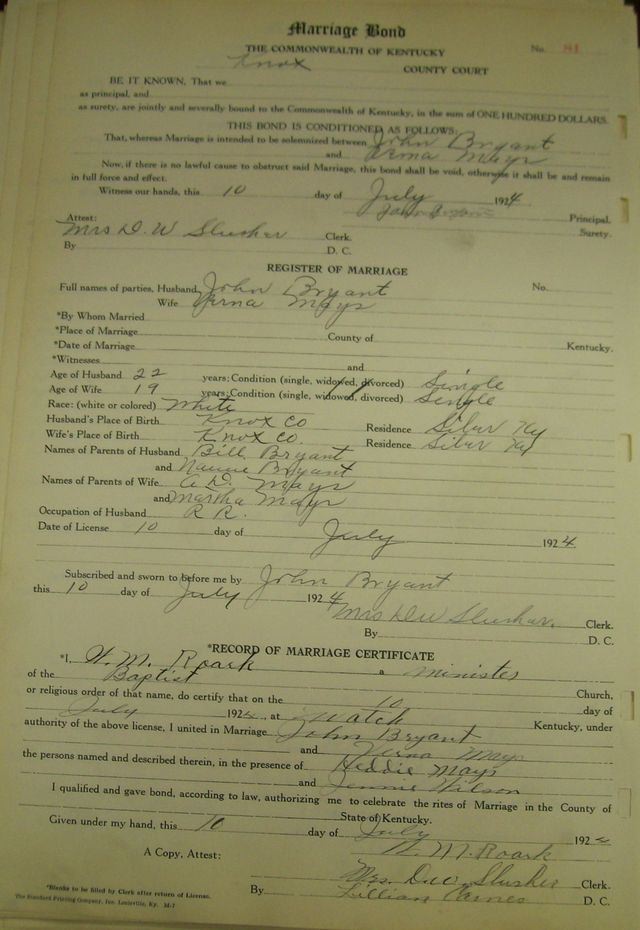 Marriage Bond
THE COMMONWEALTH OF KENTUCKY No. 81
Knox COUNTY COURT
BE IT KNOWN, That we
as principal, and
as surety, are jointly and severally bound to the Commonwealth of Kentucky, in the sum of ONE HUNDRED DOLLARS.
THIS BOND IS CONDITIONED AS FOLLOWS:
That, whereas Marriage is intended to be solemnized between John Bryant
and Verna Mays
Now, if there is no lawful cause to obstruct said Marriage, this bond shall be void, otherwise it shall be and remain
in full force and effect.
Witness our hands, this 10 day of July 1924
John Bryant Principal.
Attest: Surety.
Mrs D. W Slusher Clerk.
By D. C.
REGISTER OF MARRIAGE
Full names of parties, Husband John Bryant No.
Wife Verna Mays
*By Whom Married
*Place of Marriage County of Kentucky.
*Date of Marriage
*Witnesses and
Age of Husband 22 years; Condition (single, widowed, divorced) Single
Age of Wife 19 years; Condition (single, widowed, divorced) Single
Race: (white or colored) White
Husband's Place of Birth Knox Co Residence Siler Ky
Wife's Place of Birth Knox Co. Residence Siler Ky
Names of Parents of Husband Bill Bryant
and Nannie Bryant
Names of Parents of Wife A. D. Mays
and Martha Mays
Occupation of Husband R R.
Date of License 10 day of July 1924
Subscribed and sworn to before me by John Bryant
this 10 day of July 1924
Mrs D W Slusher. Clerk.
By D. C.
*RECORD OF MARRIAGE CERTIFICATE
*I, H. M. Roark a minister
of the Baptist Church,
or religious order of that name, do certify that on the 10 day of
July 1924, at Swatch Kentucky, under
authority of the above license, I united in Marriage John Bryant
and Verna Mays
the persons named and described therein, in the presence of Heddie Mays
and Jennie Wilson
I qualified and gave bond, according to law, authorizing me to celebrate the rites of Marriage in the County of
State of Kentucky.
Given under my hand, this 10 day of July 1924
H. M. Roark
A Copy, Attest:
Mrs. D W Slusher Clerk.
By Lillian Carnes D. C.
*Blanks to be filled by Clerk after return of License.
The Standard Printing Company, Inc. Louisville, Ky. M-7